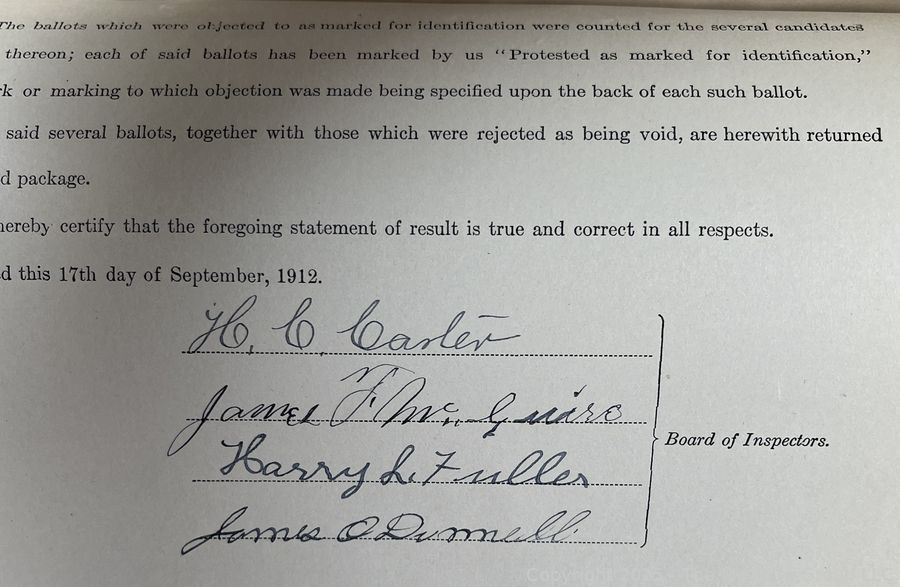 The ballots which were objected to as marked for identification were counted for the several candidates
thereon; each of said ballots has been marked by us "Protested as marked for identification,"
k or marking to which objection was made being specified upon the back of each such ballot.
said several ballots, together with those which were rejected as being void, are herewith returned
d package.
hereby certify that the foregoing statement of result is true and correct in all respects.
d this 17th day of September, 1912.
H. C. Carter
James F. Mc. Guire
Harry L. Fuller
Board of Inspectors.
James O Dunnell